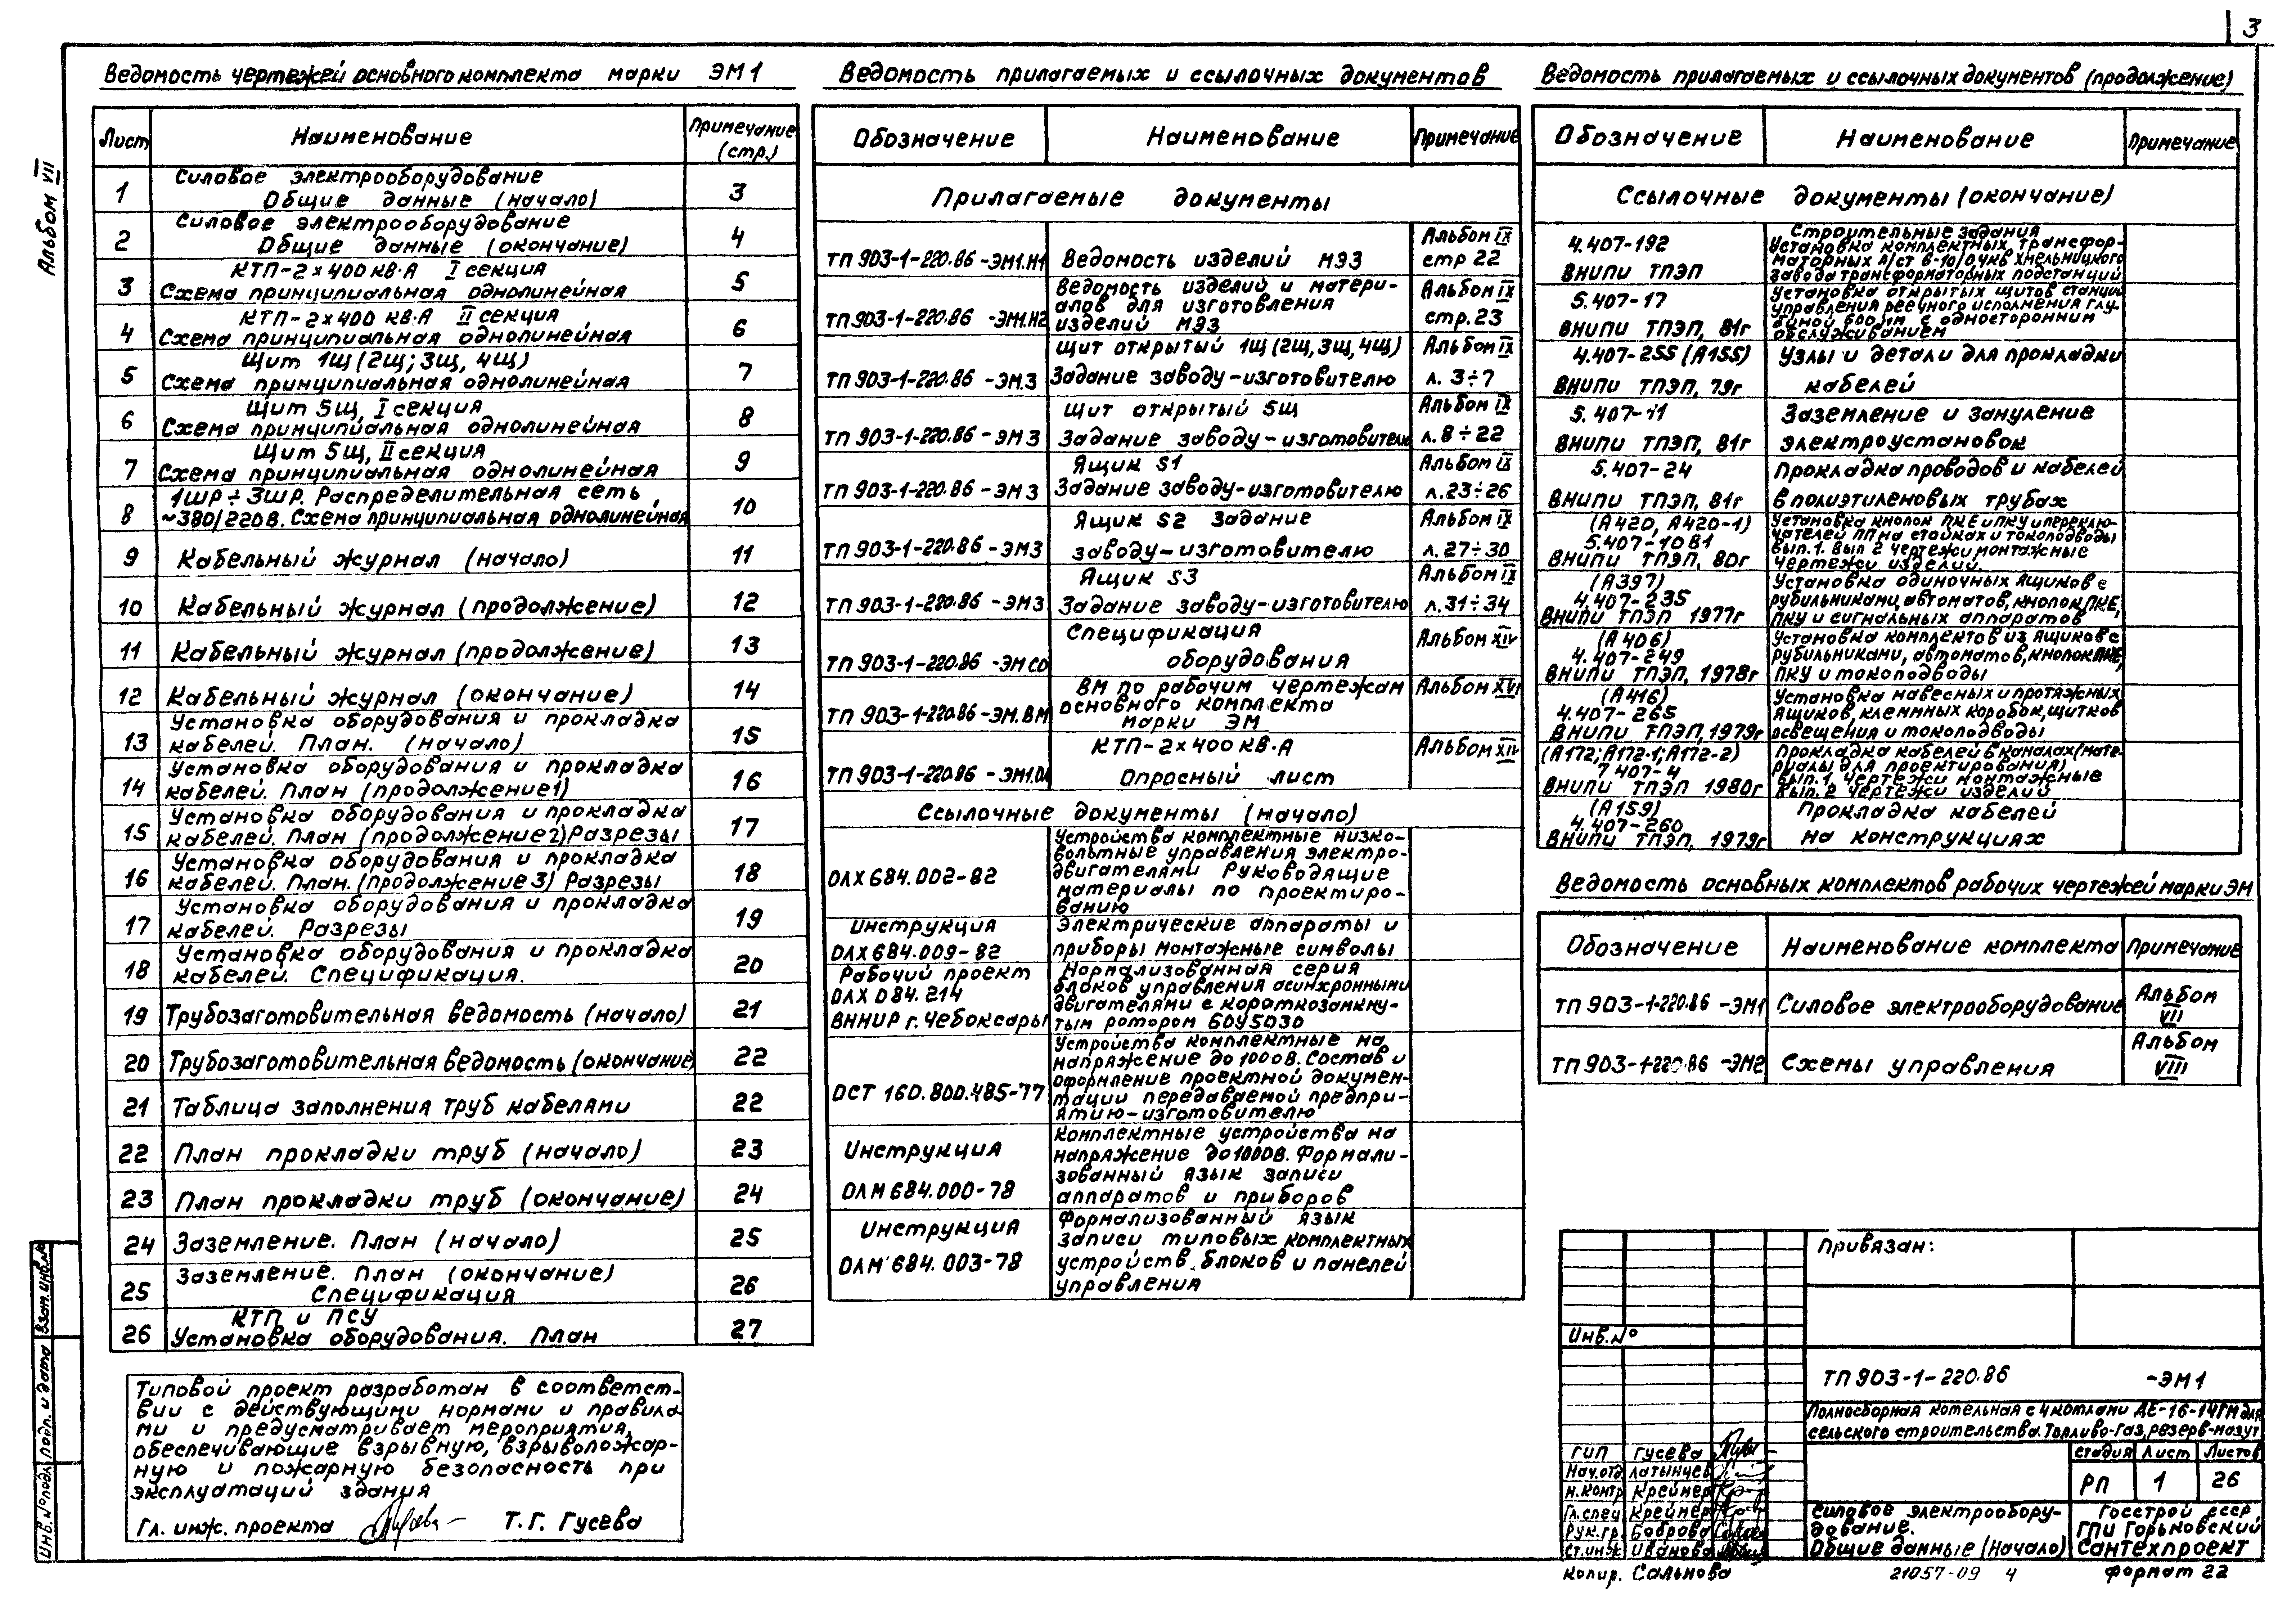 3
Альбом VII
Ведомость чертежей основного комплекта марки ЭМ1
Лист
Наименование
Примечание
(стр.)
1
Силовое электрооборудование
Общие данные (начало)
3
2
Силовое электрооборудование
Общие данные (окончание)
4
3
КТП-2×400 кВ·А I секция
Схема принципиальная однолинейная
5
4
КТП-2×400 кВ·А II секция
Схема принципиальная однолинейная
6
5
Щит 1Щ (2Щ; 3Щ, 4Щ)
Схема принципиальная однолинейная
7
6
Щит 5Щ, I секция
Схема принципиальная однолинейная
8
7
Щит 5Щ, II секция
Схема принципиальная однолинейная
9
8
1ШР÷3ШР. Распределительная сеть
~380/220В. Схема принципиальная однолинейная
10
9
Кабельный журнал (начало)
11
10
Кабельный журнал (продолжение)
12
11
Кабельный журнал (продолжение)
13
12
Кабельный журнал (окончание)
14
13
Установка оборудования и прокладка
кабелей. План. (начало)
15
14
Установка оборудования и прокладка
кабелей. План (продолжение 1)
16
15
Установка оборудования и прокладка
кабелей. План (продолжение 2) Разрезы
17
16
Установка оборудования и прокладка
кабелей. План. (продолжение 3) Разрезы
18
17
Установка оборудования и прокладка
кабелей. Разрезы
19
18
Установка оборудования и прокладка
кабелей. Спецификация.
20
19
Трубозаготовительная ведомость (начало)
21
20
Трубозаготовительная ведомость (окончание)
22
21
Таблица заполнения труб кабелями
22
22
План прокладки труб (начало)
23
23
План прокладки труб (окончание)
24
24
Заземление. План (начало)
25
25
Заземление. План (окончание)
Спецификация
26
26
КТП и ПСУ
Установка оборудования. План
27
Типовой проект разработан в соответст-
вии с действующими нормами и правила
ми и предусматривает мероприятия,
обеспечивающие взрывную, взрывопожар-
ную и пожарную безопасность при
эксплуатаций здания
Гл. инж. проекта
Т.Г. Гусева
Ведомость прилагаемых и ссылочных документов
Обозначение
Наименование
Примечание
Прилагаемые документы
ТП 903-1-220.86 -ЭМ1.И1
Ведомость изделий МЭЗ
Альбом IX
стр 22
ТП 903-1-220.86 -ЭМ1.И2
Ведомость изделий и матери-
алов для изготовления
изделий МЭЗ
Альбом IX
стр. 23
ТП 903-1-220.86 -ЭМ.3
Щит открытый 1Щ (2Щ, 3Щ, 4Щ)
Задание заводу-изготовителю
Альбом IX
л. 3÷7
ТП 903-1-220.86 -ЭМ 3
Щит открытый 5Щ
Задание заводу-изготовителю
Альбом IX
л. 8÷22
ТП 903-1-220.86 -ЭМ 3
Ящик S1
Задание заводу-изготовителю
Альбом IX
л. 23÷26
ТП 903-1-220.86 -ЭМ3
Ящик S2 Задание
заводу-изготовителю
Альбом IX
л. 27÷30
ТП 903-1-220.86 -ЭМ3
Ящик S3
Задание заводу-изготовителю
Альбом IX
л. 31÷34
ТП 903-1-220.86 -ЭМ.СО
Спецификация
оборудования
Альбом XIV
ТП 903-1-220.86 -ЭМ.ВМ
ВМ по рабочим чертежам
основного комплекта
марки ЭМ
Альбом XVI
ТП 903-1-220.86 -ЭМ1.ОЛ
КТП-2×400 кВ·А
Опросный лист
Альбом XIV
Ссылочные документы (начало)
ОЛХ 684.002-82
Устройства комплектные низко-
вольтные управления электро-
двигателями Руководящие
материалы по проектиро-
ванию
Инструкция
ОЛХ 684.009-82
Электрические аппараты и
приборы монтажные символы
Рабочий проект
ОЛХ 084.214
ВНИИР г. Чебоксары
Нормализованная серия
блоков управления асинхронными
двигателями с короткозамкну-
тым ротором БОУ5030
ОСТ 160.800.485-77
Устройства комплектные на
напряжение до 1000В. Состав и
оформление проектной докумен-
тации передаваемой предпри-
ятию-изготовителю
Инструкция
ОЛМ 684.000-78
Комплектные устройства на
напряжение до 1000В. Формали-
зованный язык записи
аппаратов и приборов
Инструкция
ОЛМ 684.003-78
Формализованный язык
записи типовых комплектных
устройств. блоков и панелей
управления
Ведомость прилагаемых и ссылочных документов (продолжение)
Обозначение
Наименование
Примечание
Ссылочные документы (окончание)
4.407-192
ВНИПИ ТПЭП
Строительные задания
Установка комплектных трансфор-
маторных п/ст 6-10/0,4кВ Хмельницкого
завода трансформаторных подстанций
5.407-17
ВНИПИ ТПЭП, 81г
Установка открытых щитов станций
управления реечного исполнения глу-
биной 600мм с односторонним
обслуживанием
4.407-255 (А155)
ВНИПИ ТПЭП, 79г
Узлы и детали для прокладки
кабелей
5.407-11
ВНИПИ ТПЭП, 81г
Заземление и зануление
электроустановок
5.407-24
ВНИПИ ТПЭП, 81г
Прокладка проводов и кабелей
в полиэтиленовых трубах
(А420, А420-1)
5.407-10В1
ВНИПИ ТПЭП, 80г
Установка кнопок ПКЕ и ПКУ и переклю-
чателей ПП на стойках и токоподводы
Вып.1. Вып 2 Чертежи монтажные
Чертежи изделий.
(А397)
4.407-235
ВНИПИ ТПЭП 1977г
Установка одиночных ящиков с
рубильниками, автоматов, кнопок ПКЕ,
ПКУ и сигнальных аппаратов
(А406)
4.407-249
ВНИПИ ТПЭП, 1978г
Установка комплектов из ящиков с
рубильниками, автоматов, кнопок ПКЕ,
ПКУ и токоподводы
(А416)
4.407-265
ВНИПИ ТПЭП, 1979г
Установка навесных и протяжных
ящиков, клеммных коробок, щитков
освещения и токоподводы
(А172; А172-1; А172-2)
7 407-4
ВНИПИ ТПЭП 1980г
Прокладка кабелей в каналах (мате-
риалы для проектирования)
Вып.1. Чертежи монтажные
Вып. 2 Чертежи изделий
(А159)
4.407-260
ВНИПИ ТПЭП, 1979г
Прокладка кабелей
на конструкциях
Ведомость основных комплектов рабочих чертежей марки ЭМ
Обозначение
Наименование комплекта
Примечание
ТП 903-1-220.86 -ЭМ1
Силовое электрооборудование
Альбом
VII
ТП 903-1-220.86 -ЭМ2
Схемы управления
Альбом
VIII
Привязан:
Инв.№
ТП 903-1-220.86 -ЭМ1
Полносборная котельная с 4 котлами ДЕ-16-14ГМ для
сельского строительства. Топливо-газ, резерв-мазут
ГИП Гусева
Нач.отд Латынцев
Н.контр Крейнер
Гл.спец Крейнер
Рук.гр. Боброва
Ст.инж Иванова
Стадия Лист Листов
РП 1 26
Силовое электрообору-
дование.
Общие данные (Начало)
Госстрой СССР
ГПИ Горьковский
Сантехпроект
Копир. Сальнова
21057-09 4
Формат 22
Взам.инв.№
Подп. и дата
Инв.№ подл.